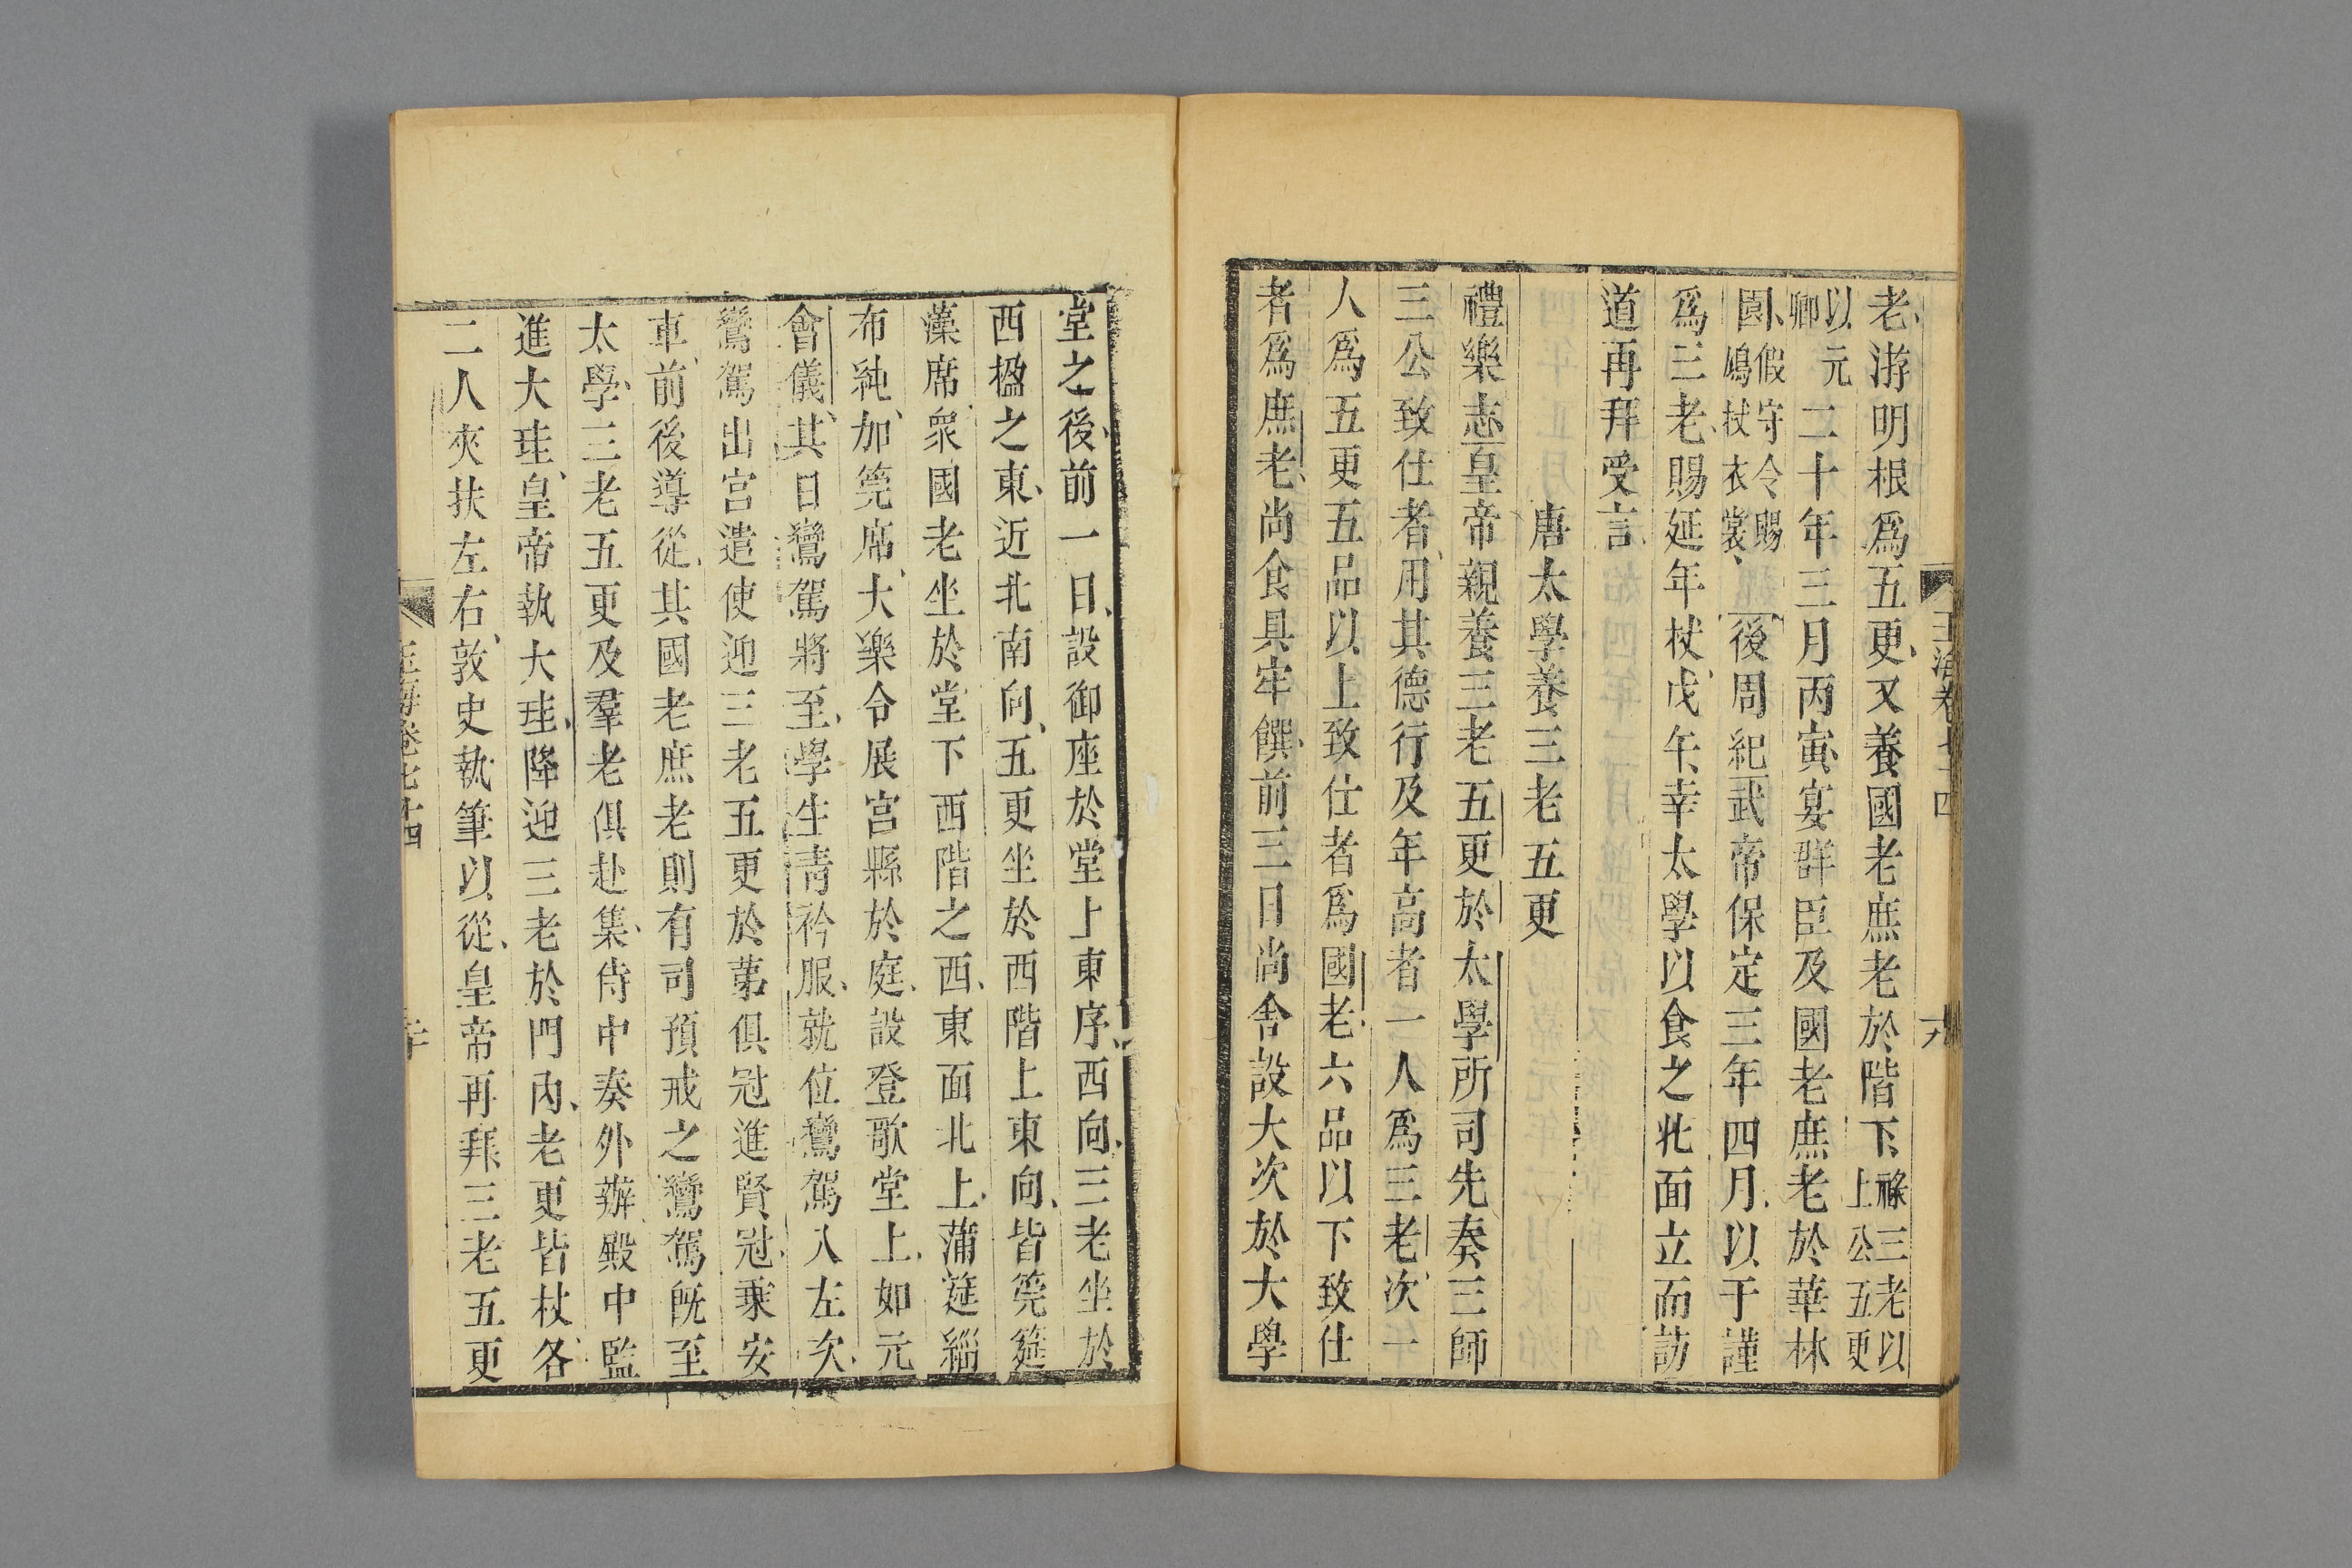 玉海卷七十四 十九
老游明根爲五更又養國老庶老於階下祿三老以上公五更
以元卿二十年三月丙寅宴群臣及國老庶老於華林
園假守令賜鳩杖衣裳後周紀武帝保定三年四月以于謹
爲三老賜延年杖戊午幸太學以食之北面立而訪
道再拜受言
唐太學養三老五更
禮樂志皇帝親養三老五更於太學所司先奏三師
三公致仕者用其德行及年高者一人爲三老次一
人爲五更五品以上致仕者爲國老六品以下致仕
者爲庶老尚食具牢饌前三日尚舍設大次於大學
堂之後前一日設御座於堂上東序西向三老坐於
西楹之東近北南向五更坐於西階上東向皆筦筵
藻席衆國老坐於堂下西階之西東面北上蒲筵緇
布純加筦席大樂令展宮縣於庭設登歌堂上如元
會儀其日鸞駕將至學生青衿服就位鸞駕入左次
鸞駕出宮遣使迎三老五更於第俱冠進賢冠乘安
車前後導從其國老庶老則有司預戒之鸞駕旣至
太學三老五更及羣老俱赴集侍中奏外辦殿中監
進大珪皇帝執大珪降迎三老於門內老更皆杖各
二人夾扶左右敦史執筆以從皇帝再拜三老五更
玉海卷七十四 二十